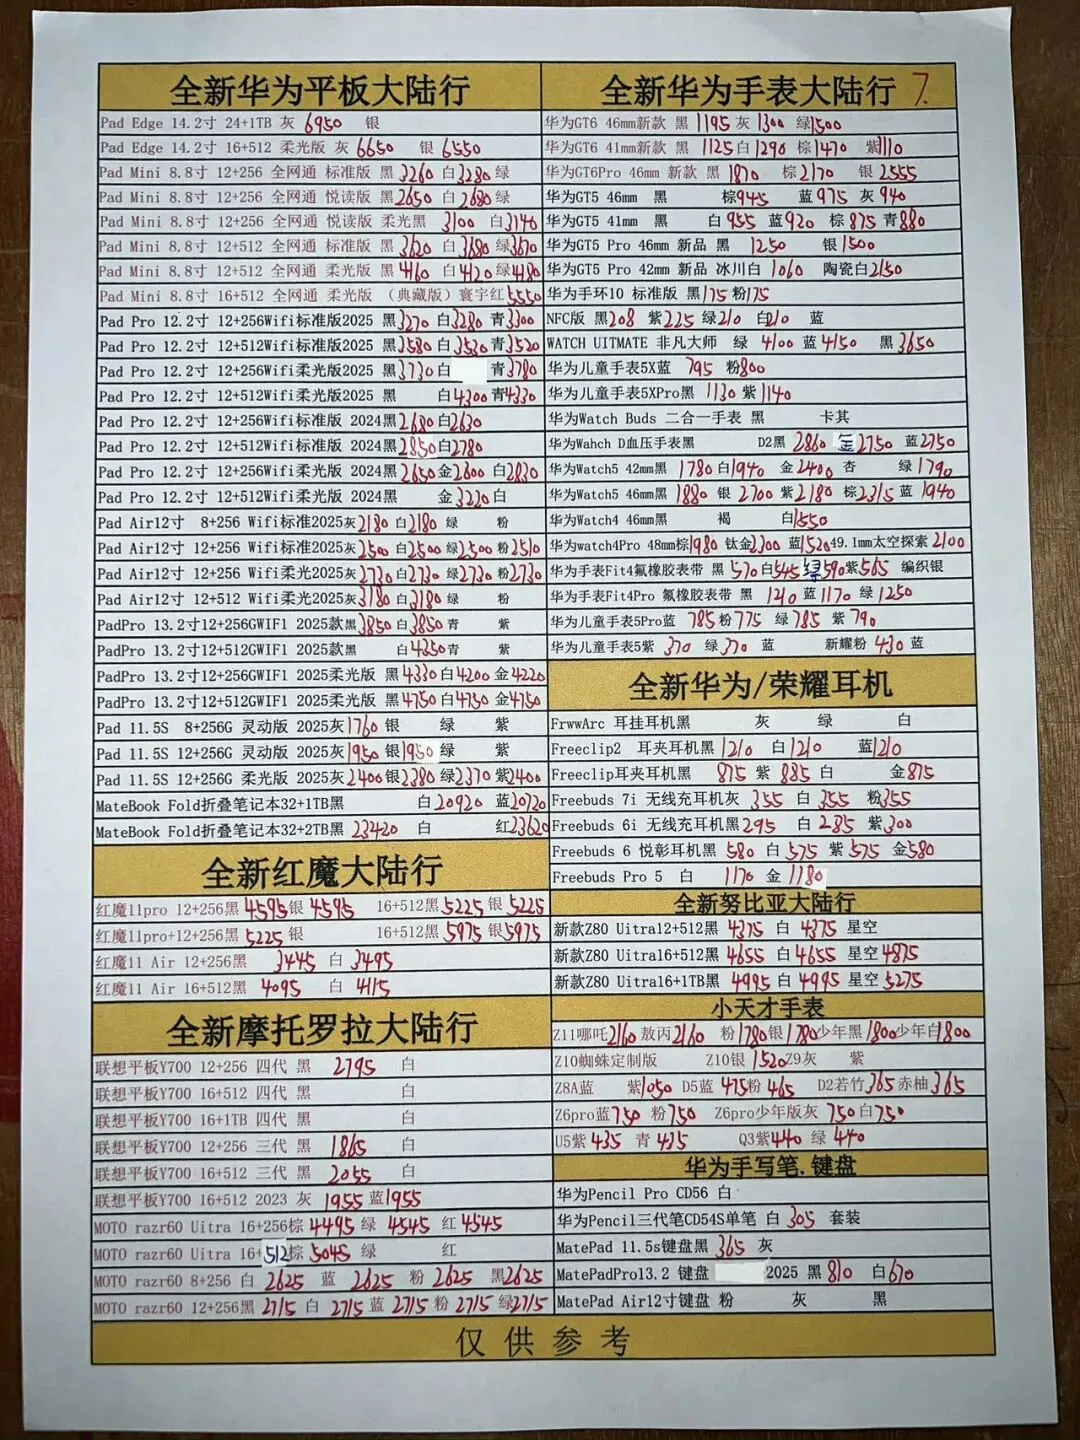 全新华为平板大陆行
Pad Edge 14.2寸 24+1TB 灰 6950 银
Pad Edge 14.2寸 16+512 柔光版 灰 6650 银 6550
Pad Mini 8.8寸 12+256 全网通 标准版 黑 3260 白 3280 绿
Pad Mini 8.8寸 12+256 全网通 悦读版 黑 2650 白 2680 绿
Pad Mini 8.8寸 12+256 全网通 悦读版 柔光黑 3100 白 3140
Pad Mini 8.8寸 12+512 全网通 标准版 黑 3620 白 3680 绿 3670
Pad Mini 8.8寸 12+512 全网通 柔光版 黑 4160 白 4120 绿 4180
Pad Mini 8.8寸 16+512 全网通 柔光版 （典藏版）寰宇红 5550
Pad Pro 12.2寸 12+256Wifi标准版2025 黑 3270 白 3280 青 3300
Pad Pro 12.2寸 12+512Wifi标准版2025 黑 3580 白 3530 青 3520
Pad Pro 12.2寸 12+256Wifi柔光版2025 黑 3730 白 青 3780
Pad Pro 12.2寸 12+512Wifi柔光版2025 黑 白 4300 青 4330
Pad Pro 12.2寸 12+256Wifi标准版 2024黑 2680 白 2630
Pad Pro 12.2寸 12+512Wifi标准版 2024黑 2850 白 2780
Pad Pro 12.2寸 12+256Wifi柔光版 2024黑 2650 金 2600 白 2830
Pad Pro 12.2寸 12+512Wifi柔光版 2024黑 金 3220 白
Pad Air12寸 8+256 Wifi标准2025灰 2180 白 2180 绿 粉
Pad Air12寸 12+256 Wifi标准2025灰 2500 白 2500 绿 2500 粉 2510
Pad Air12寸 12+256 Wifi柔光2025灰 2730 白 2730 绿 2730 粉 2730
Pad Air12寸 12+512 Wifi柔光2025灰 3180 白 3180 绿 粉
PadPro 13.2寸12+256GWIF1 2025款黑 3850 白 3850 青 紫
PadPro 13.2寸12+512GWIF1 2025款黑 白 4350 青 紫
PadPro 13.2寸12+256GWIF1 2025柔光版 黑 4330 白 4200 金 4220
PadPro 13.2寸12+512GWIF1 2025柔光版 黑 4750 白 4750 金 4750
Pad 11.5S 8+256G 灵动版 2025灰 1760 银 绿 紫
Pad 11.5S 12+256G 灵动版 2025灰 1950 银 1950 绿 紫
Pad 11.5S 12+256G 柔光版 2025灰 2400 银 2380 绿 2370 紫 2400
MateBook Fold折叠笔记本32+1TB黑 白 20920 蓝 20720
MateBook Fold折叠笔记本32+2TB黑 23420 白 红 23620
全新红魔大陆行
红魔11pro 12+256黑 4595 银 4595 16+512黑 5225 银 5225
红魔11pro+12+256黑 5225 银 16+512黑 5975 银 5975
红魔11 Air 12+256黑 3445 白 3495
红魔11 Air 16+512黑 4095 白 4115
全新摩托罗拉大陆行
联想平板Y700 12+256 四代 黑 2795 白
联想平板Y700 16+512 四代 黑 白
联想平板Y700 16+1TB 四代 黑 白
联想平板Y700 12+256 三代 黑 1865 白
联想平板Y700 16+512 三代 黑 2055 白
联想平板Y700 16+512 2023 灰 1955 蓝 1955
MOTO razr60 Uitra 16+256棕 4495 绿 4545 红 4545
MOTO razr60 Uitra 16+512棕 5045 绿 红
MOTO razr60 8+256 白 2625 蓝 2625 粉 2625 黑 2625
MOTO razr60 12+256黑 2715 白 2715 蓝 2715 粉 2715 绿 2715
全新华为手表大陆行 7.
华为GT6 46mm新款 黑 1195 灰 1300 绿 1500
华为GT6 41mm新款 黑 1125 白 1290 棕 1470 紫 1110
华为GT6Pro 46mm 新款 黑 1870 棕 2170 银 2555
华为GT5 46mm 黑 棕 945 蓝 975 灰 940
华为GT5 41mm 黑 白 955 蓝 920 棕 875 青 880
华为GT5 Pro 46mm 新品 黑 1250 银 1500
华为GT5 Pro 42mm 新品 冰川白 1060 陶瓷白 2150
华为手环10 标准版 黑 175 粉 175
NFC版 黑 208 紫 225 绿 210 白 210 蓝
WATCH UITMATE 非凡大师 绿 4100 蓝 4150 黑 3650
华为儿童手表5X蓝 795 粉 800
华为儿童手表5XPro黑 1130 紫 1140
华为Watch Buds 二合一手表 黑 卡其
华为Wahch D血压手表黑 D2黑 2860 金 2750 蓝 2750
华为Watch5 42mm黑 1780 白 1940 金 2400 杏 绿 1790
华为Watch5 46mm黑 1880 银 2700 紫 2180 棕 2315 蓝 1940
华为Watch4 46mm黑 褐 白 1550
华为watch4Pro 48mm棕 1980 钛金 2300 蓝 1520 49.1mm太空探索 2100
华为手表Fit4氟橡胶表带 黑 570 白 545 绿 590 紫 565 编织银
华为手表Fit4Pro 氟橡胶表带 黑 1210 蓝 1170 绿 1250
华为儿童手表5Pro蓝 785 粉 775 绿 785 紫 790
华为儿童手表5紫 370 绿 370 蓝 新耀粉 430 蓝
全新华为/荣耀耳机
FrwwArc 耳挂耳机黑 灰 绿 白
Freeclip2 耳夹耳机黑 1210 白 1210 蓝 1210
Freeclip耳夹耳机黑 875 紫 885 白 金 875
Freebuds 7i 无线充耳机灰 355 白 355 粉 355
Freebuds 6i 无线充耳机黑 295 白 285 紫 300
Freebuds 6 悦彰耳机黑 580 白 575 紫 575 金 580
Freebuds Pro 5 白 1170 金 1180
全新努比亚大陆行
新款Z80 Uitra12+512黑 4375 白 4375 星空
新款Z80 Uitra16+512黑 4655 白 4655 星空 4875
新款Z80 Uitra16+1TB黑 4995 白 4995 星空 5275
小天才手表
Z11哪吒 2160 敖丙 2160 粉 1780 银 1780 少年黑 1800 少年白 1800
Z10蜘蛛定制版 Z10银 1520 Z9灰 紫
Z8A蓝 紫 1050 D5蓝 475 粉 465 D2若竹 365 赤柚 365
Z6pro蓝 750 粉 750 Z6pro少年版灰 750 白 750
U5紫 435 青 435 Q3紫 440 绿 440
华为手写笔.键盘
华为Pencil Pro CD56 白
华为Pencil三代笔CD54S单笔 白 305 套装
MatePad 11.5s键盘黑 365 灰
MatePadPro13.2 键盘 2025 黑 810 白 670
MatePad Air12寸键盘 粉 灰 黑
仅供参考